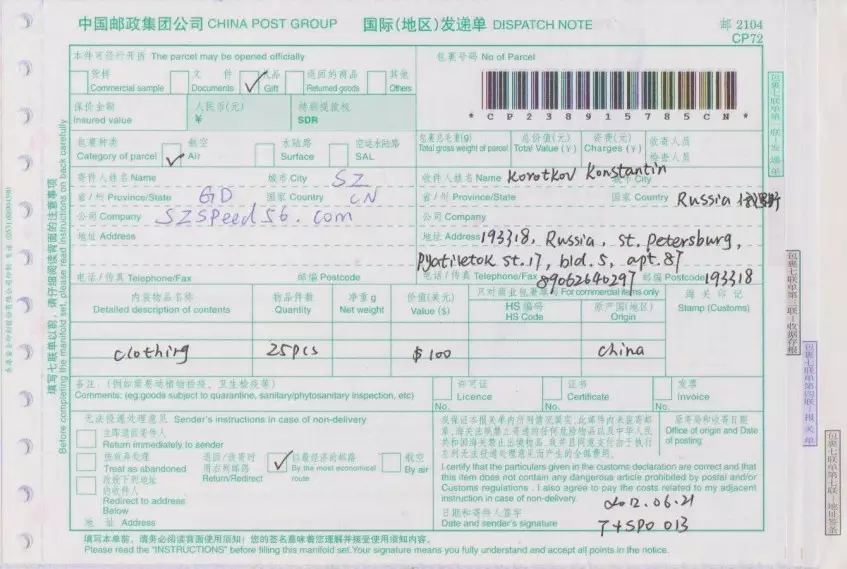 中国邮政集团公司 CHINA POST GROUP 国际(地区)发递单 DISPATCH NOTE 邮 2104
CP72
本件可径行开拆 The parcel may be opened officially
包裹号码 No of Parcel
货样 Commercial sample
文件 Documents
礼品 Gift
返回的商品 Returned goods
其他 Others
* CP238915785CN *
保价金额 Insured value
人民币(元) ¥
特别提款权 SDR
包裹种类 Category of parcel
航空 Air
水陆路 Surface
空运水陆路 SAL
包裹总毛重(g) Total gross weight of parcel
总价值(元) Total Value (¥)
资费(元) Charges (¥)
收寄人员
检查人员
寄件人姓名 Name 城市 City SZ
省/州 Province/State GD 国家 Country CN
公司 Company SZSpeed56.com
地址 Address
电话/传真 Telephone/Fax 邮编 Postcode
收件人姓名 Name Korotkov Konstantin 城市 City
省/州 Province/State 国家 Country Russia 俄罗斯
公司 Company
地址 Address 193318, Russia, st. Petersburg,
Pyatiletok st.17, bld.5, apt.87
电话/传真 Telephone/Fax 89062640297 邮编 Postcode 193318
内装物品名称 Detailed description of contents
物品件数 Quantity
净重 g Net weight
价值(美元) Value ($)
只对商业包裹填写 For commercial items only
HS 编号 HS Code
原产国(地区) Origin
海关印记 Stamp (Customs)
clothing 25pcs $100 china
备注：(例如需要动植物检疫、卫生检疫等)
Comments: (eg.goods subject to quarantine, sanitary/phytosanitary inspection, etc)
许可证 Licence No.
证书 Certificate No.
发票 Invoice No.
无法投递处理意见 Sender's instructions in case of non-delivery
立即退回寄件人
Return immediately to sender
按放弃处理
Treat as abandoned
改投下列地址的收件人
Redirect to address Below
退回/改寄时用右列邮路
Return/Redirect
以最经济的邮路
By the most economical route
航空 By air
地址 Address
I certify that the particulars given in the customs declaration are correct and that
this item does not contain any dangerous article prohibited by postal and/or
Customs regulations . I also agree to pay the costs related to my adjacent
instruction in case of non-delivery.
日期和寄件人签字
Date and sender's signature
2012.06.21
T4SP0 013
原寄局和收寄日期
Office of origin and Date of posting:
填写本单前，请务必阅读背面使用须知；您的签名意味着您理解并接受使用须知内容。
Please read the "INSTRUCTIONS" before filling this manifold set. Your signature means you fully understand and accept all points in the notice.
填写七联单以前，请仔细阅读背面的注意事项
Before completing the manifold set, please read instructions on back carefully
包裹七联单第一联－发递单
包裹七联单第二联－收据存根
包裹七联单第四联－报关单
包裹七联单第七联－地址签条